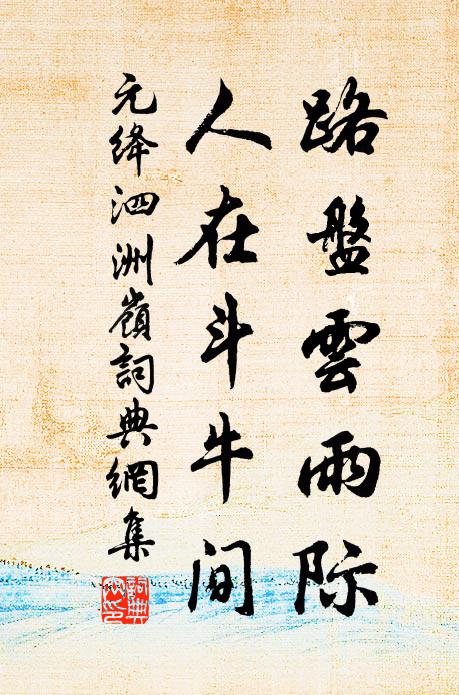 路盤雲雨际
人在斗牛间
元绛泗洲嶺詞典網集